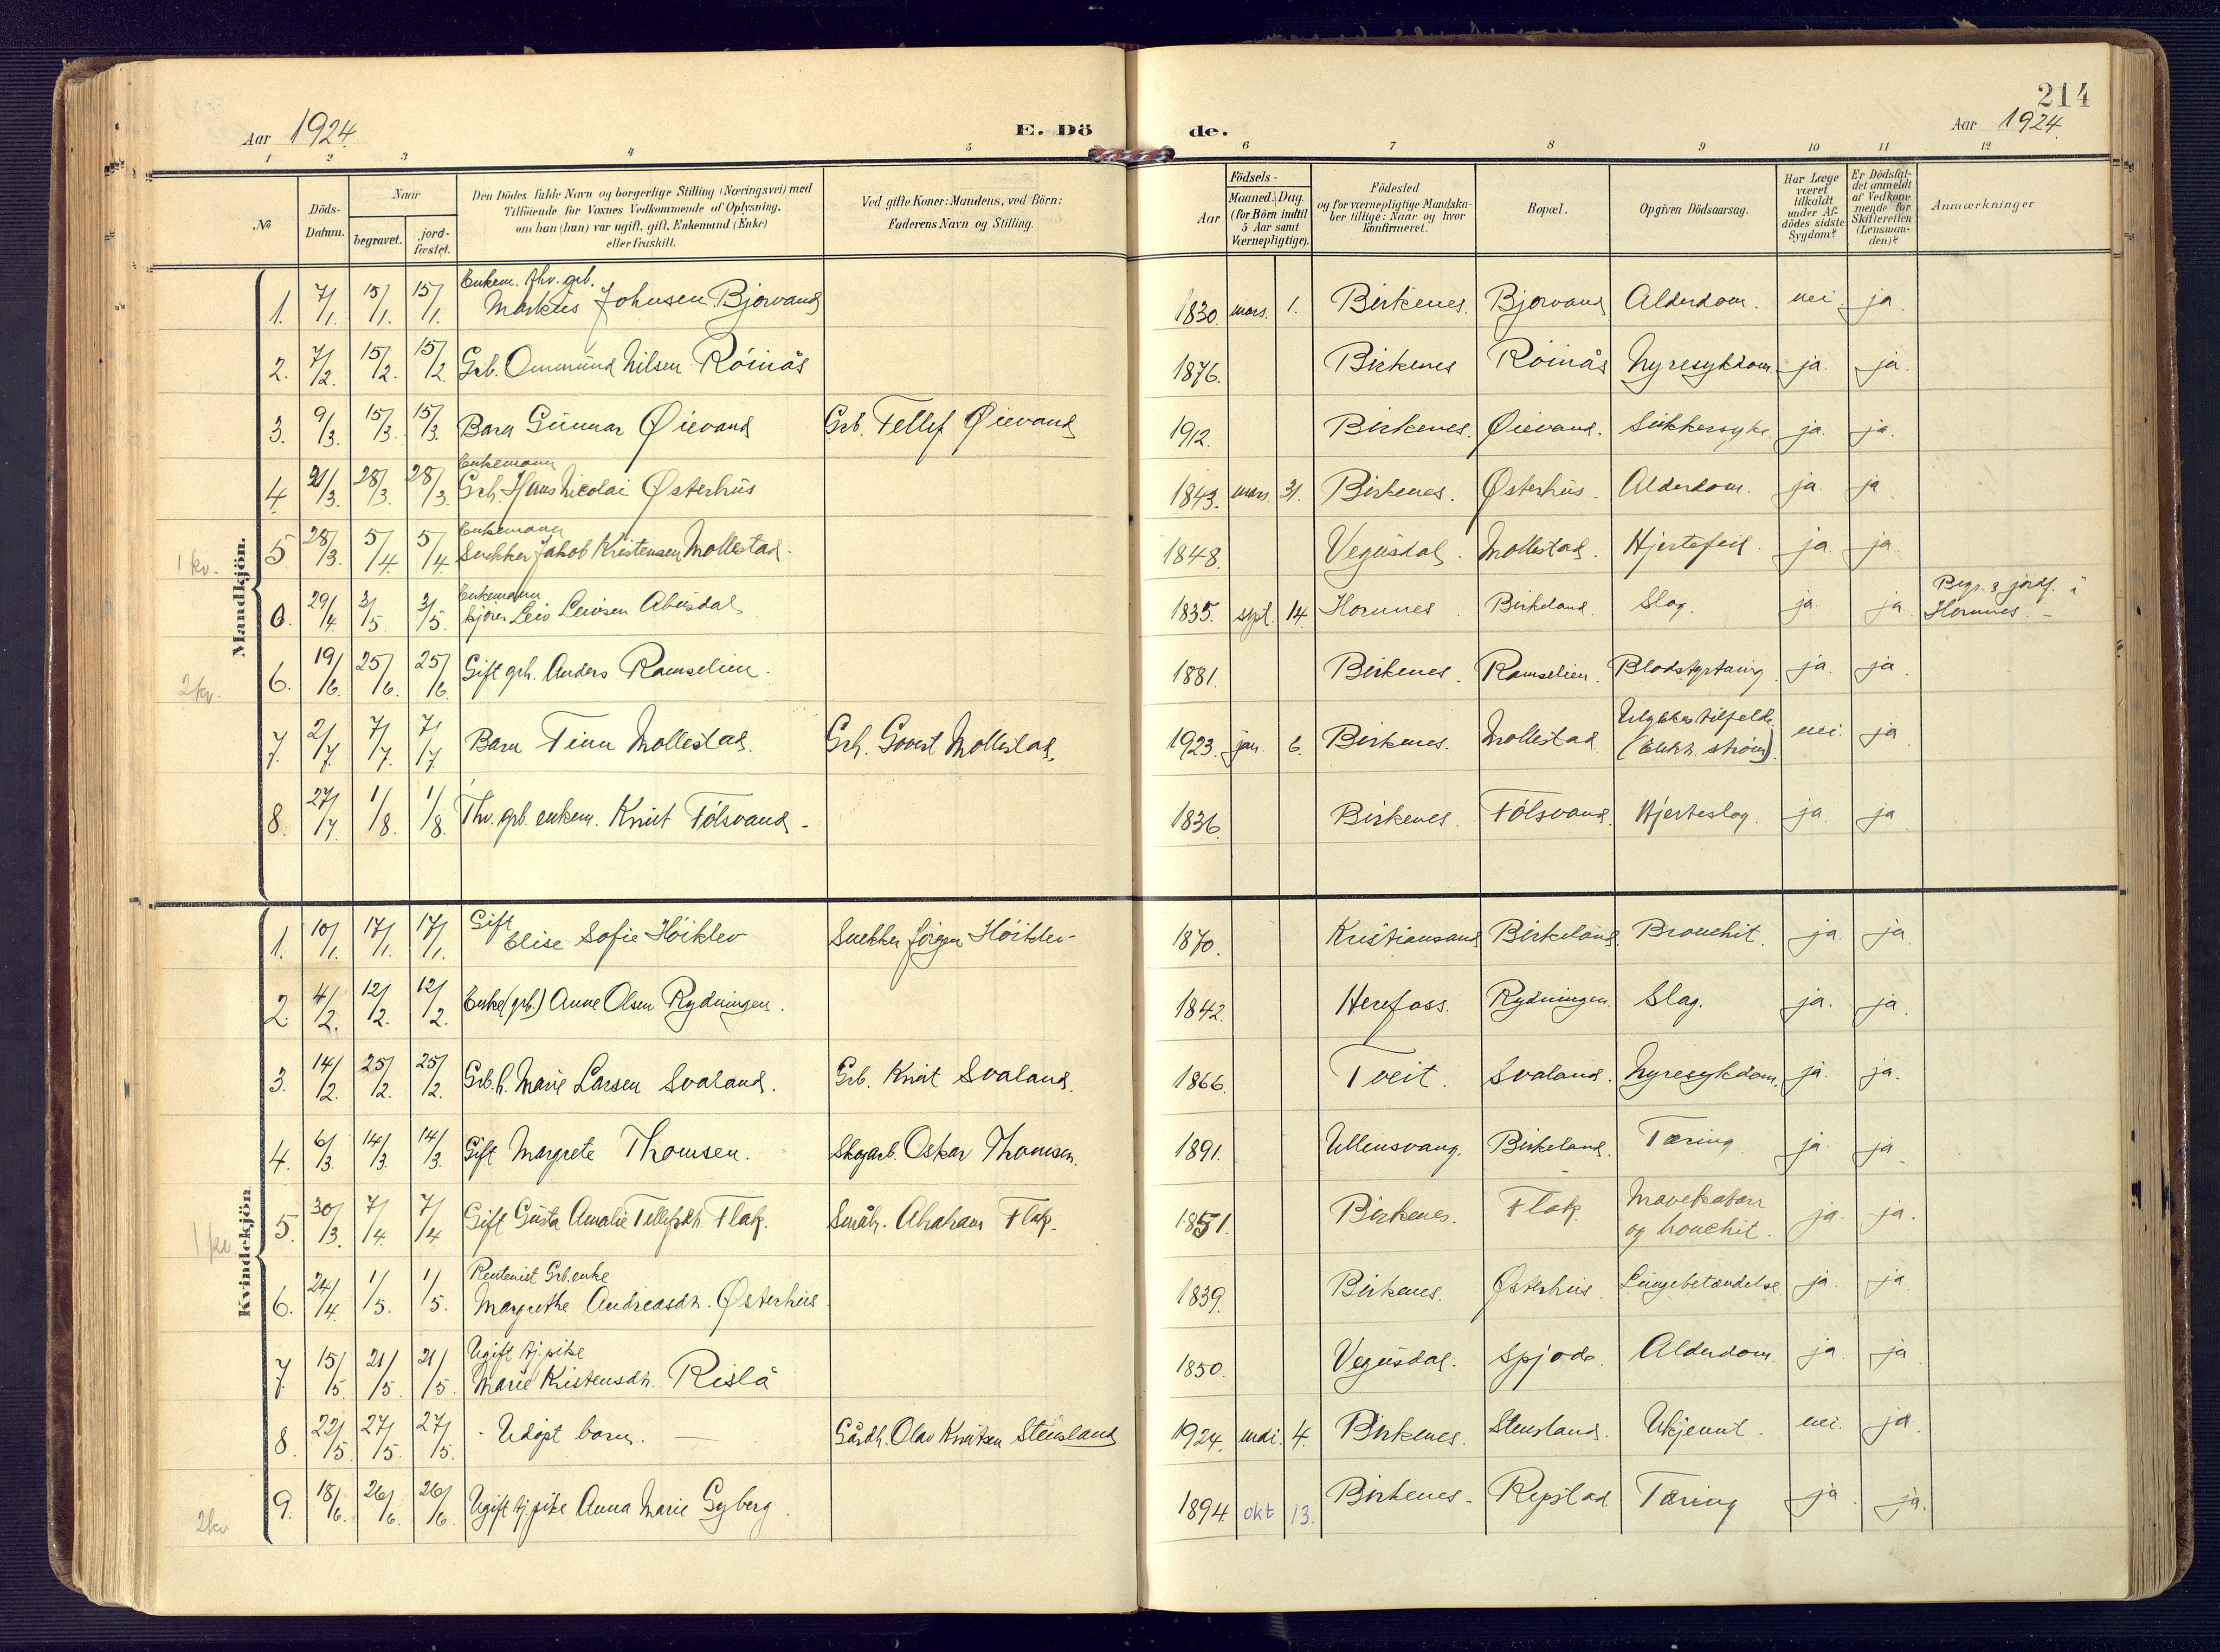 214
Aar 1924.
E. Dö
de.
Aar 1924.
1 2 3 4 5 6 7 8 9 10 11 12
№
Döds-
Datum.
Naar
begravet.
jord-
fæstet.
Den Dödes fulde Navn og borgerlige Stilling (Næringsvei) med
Tilföiende for Voxnes Vedkommende af Oplysning,
om han (hun) var ugift, gift, Enkemand (Enke)
eller fraskilt.
Ved gifte Koner: Mandens, ved Börn:
Faderens Navn og Stilling.
Födsels-
Aar
Maaned. Dag.
(for Börn indtil
5 Aar samt
Værnepligtige).
Födested
og for værnepligtige Mandska-
ber tillige: Naar og hvor
konfirmeret.
Bopæl.
Opgiven Dödsaarsag.
Har Læge
været
tilkaldt
under Af-
dödes sidste
Sygdom?
Er Dödsfal-
det anmeldt
af Vedkom-
mende for
Skifteretten
(Lensman-
den)?
Anmærkninger
Mandkjön.
Enkem. fhv. grb.
1. 7/1. 15/1. 15/1. Markus Johnsen Bjorvand 1830. mars. 1. Birkenes. Bjorvand Alderdom. nei. ja
2. 7/2. 15/2. 15/2. Grb. Ommund Nilsen Röinås 1876. Birkenes Röinås Nyresykdom. ja. ja.
3. 9/3. 15/3. 15/3. Barn Gunnar Øievand Grb. Tellef Øievand 1912. Birkenes. Øievand. Sukkersyke. ja. ja.
Enkemann
4 21/3. 28/3. 28/3. Grb. Hans Nicolai Østerhus 1843. mars. 31. Birkenes. Østerhus. Alderdom. ja. ja
Enkemann
5 28/3. 5/4. 5/4. Snekker Jakob Kristensen Mollestad. 1848. Vegusdal. Mollestad. Hjertefeil. ja. ja.
1 kv.
Enkemann
0. 29/4. 3/5. 3/5. Leiv Leivsen Abusdal 1835. sept. 14. Hornnes. Birkeland. Slag. ja. ja. Begr. & jordf. i
Hornnes. -
6. 19/6. 25/6. 25/6. Gift grb. Anders Ramselien. 1881. Birkenes. Ramselien. Blodstyrtning ja. ja.
2 kv.
7. 2/7. 7/7. 7/7. Barn Finn Mollestad. Grb. Govert Mollestad. 1923. jan. 6. Birkenes. Mollestad. Ulykkestilfelde.
(Elektr. ström). nei. ja
8. 27/7. 1/8. 1/8. Fhv. grb. enkem. Knut Fölsvand - 1836. Birkenes. Fölsvand. Hjerteslag. ja. ja
Kvindekjön
Gift
1. 10/1. 17/1. 17/1. Elise Sofie Höiklev Snekker Jörgen Höiklev- 1870. Kristiansand Birkeland Bronchit. ja. ja
2. 4/2. 12/2. 12/2. Enke (grb.) Anne Olsen Rydningen. 1842. Herefoss. Rydningen. Slag. ja. ja.
3. 14/2. 25/2. 25/2. Grb.h. Marie Larsen Svaland. Grb. Knut Svaland. 1866. Tveit. Svaland. Nyresykdom. ja. ja.
4. 6/3. 14/3. 14/3. Gift Margrete Thomsen. Skogarb. Oskar Thomsen. 1891. Ullensvang. Birkeland. Tæring. ja. ja
5. 30/3. 7/4. 7/4. Gift Gusta Amalie Tellefsdtr. Flak. Småbr. Abraham Flak. 1851. Birkenes. Flak Mavekatarr
og bronchit. ja. ja.
1 kv.
Rentenist Grb.enke
6. 24/4. 1/5. 1/5. Margrethe Andreasdtr. Østerhus 1839. Birkenes. Østerhus. Lungebetændelse. ja. ja.
Ugift tj.pike
7. 15/5. 21/5. 21/5. Marie Kristensdtr. Rislå 1850. Vegusdal. Spjode. Alderdom. ja. ja
8. 22/5. 27/5. 27/5. - Udöpt barn. - Gårdb. Olav Knutsen Stensland 1924. mai. 4. Birkenes. Stensland. Ukjennt. nei. ja
9. 18/6. 26/6. 26/6. Ugift tj.pike Anna Marie Syberg. 1894. okt 13. Birkenes. Repstad Tæring ja. ja.
2 kv